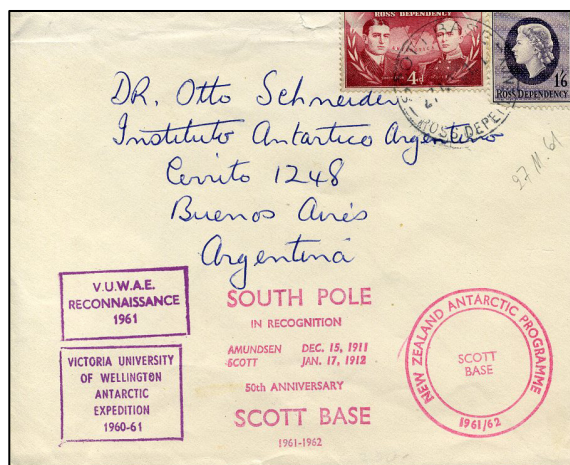 ROSS DEPENDENCY
4d
1/6
ROSS DEPENDENCY
ROSS DEPE
DR. Otto Schneider
Instituto Antartico Argentino
Cerrito 1248
Buenos Aires
Argentina
27.11.61
V.U.W.A.E.
RECONNAISSANCE
1961
VICTORIA UNIVERSITY
OF WELLINGTON
ANTARCTIC
EXPEDITION
1960-61
SOUTH POLE
IN RECOGNITION
AMUNDSEN DEC. 15, 1911
SCOTT JAN. 17, 1912
50th ANNIVERSARY
SCOTT BASE
1961-1962
NEW ZEALAND ANTARCTIC PROGRAMME
SCOTT
BASE
1961/62